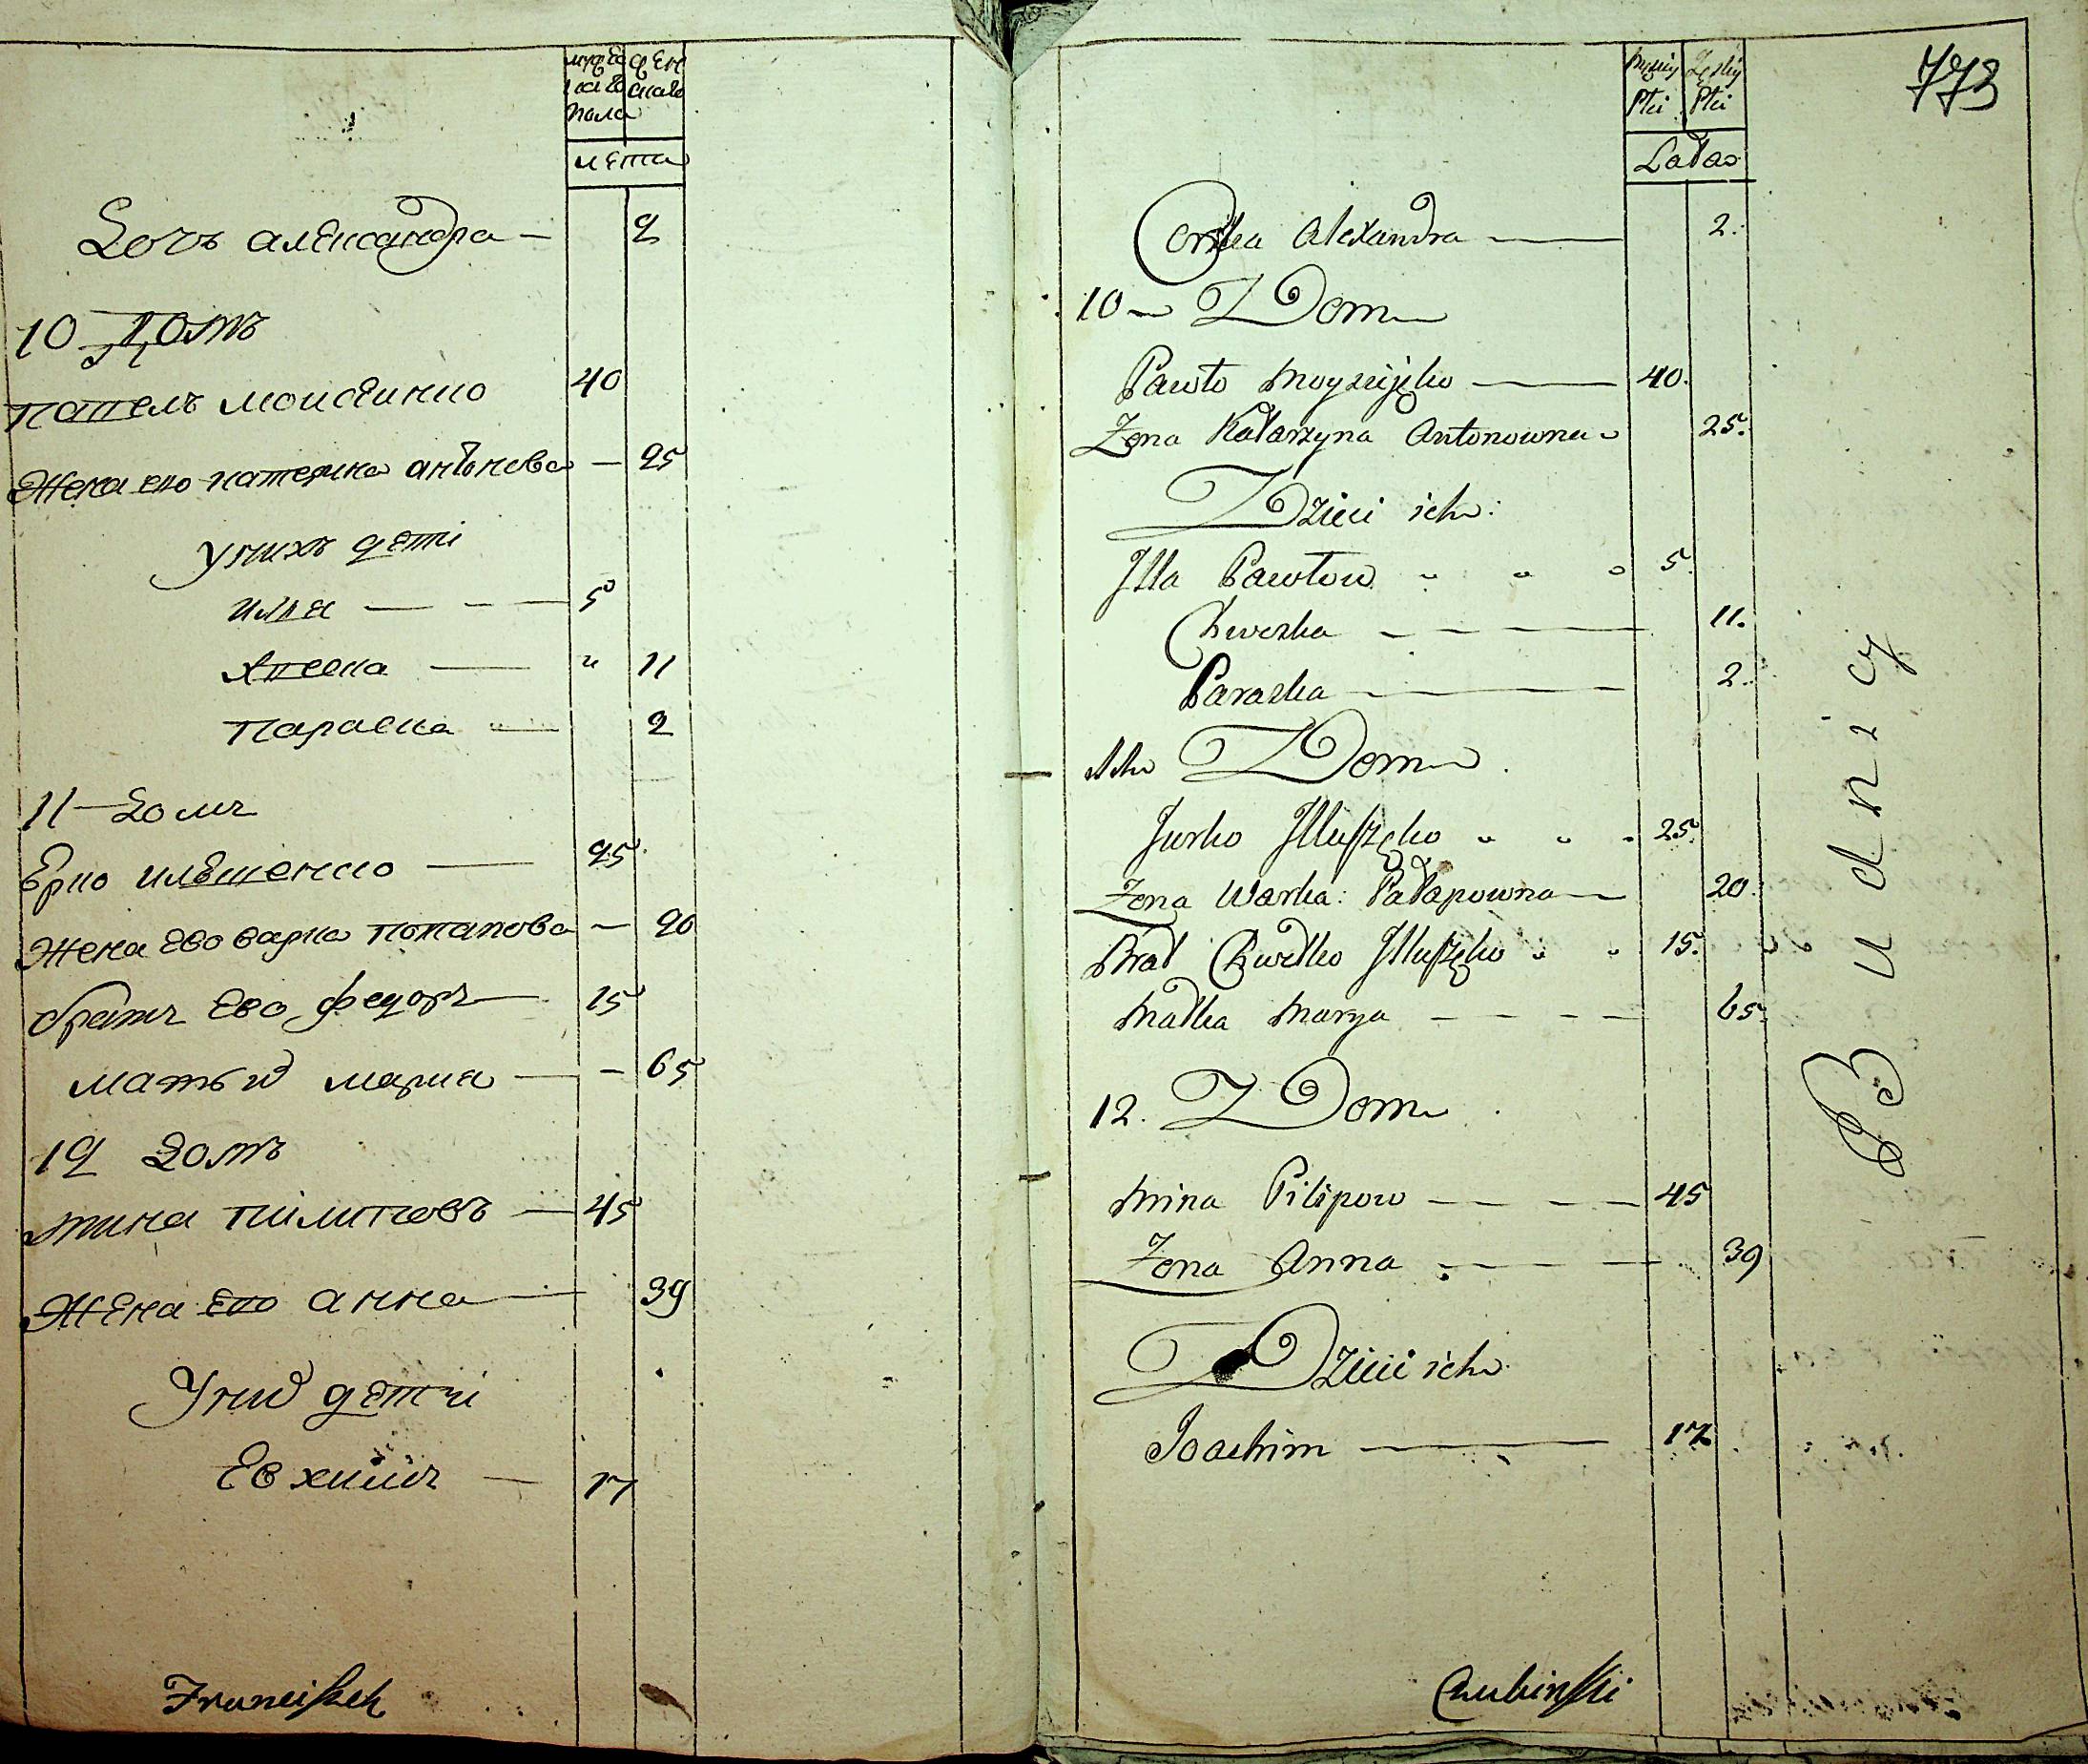 мужеска пола
женска
лета
Дочь александра — 2
10 Домъ
павелъ моисеинко 40
Жена его катерина антонова — 25
у нихъ дети
илья — 5
хвеска — " 11
параска — 2
11 Домъ
Юрко ильюшенко — 25
Жена ево варка потапова — 20
братъ ево федоръ — 15
мать их мария — 65
12 Домъ
мина пилиповъ — 45
Жена его анна — 39
У них дети
Евхимъ — 17
Franciszek
773
Męzkiy Płci
Żeńskiy Płci
Lata
Corka Alexandra — 2.
10 Dom
Pawło Moyzeijęko — 40.
Zona Katarzyna Antonowna 25.
Dzieci ich:
Jlla Pawłow 5.
Chweska — 11.
Paraska — 2.
11 Dom
Jurko Jlluszęko 25.
Zona Warka: Patapowna — 20.
Brat Chwedko Jlluszęko 15.
Matka Marya — 65.
12. Dom
Mina Pilipow — 45
Zona Anna — 39
Dzieci ich
Joachim — 17
Czubinski
Budnicy